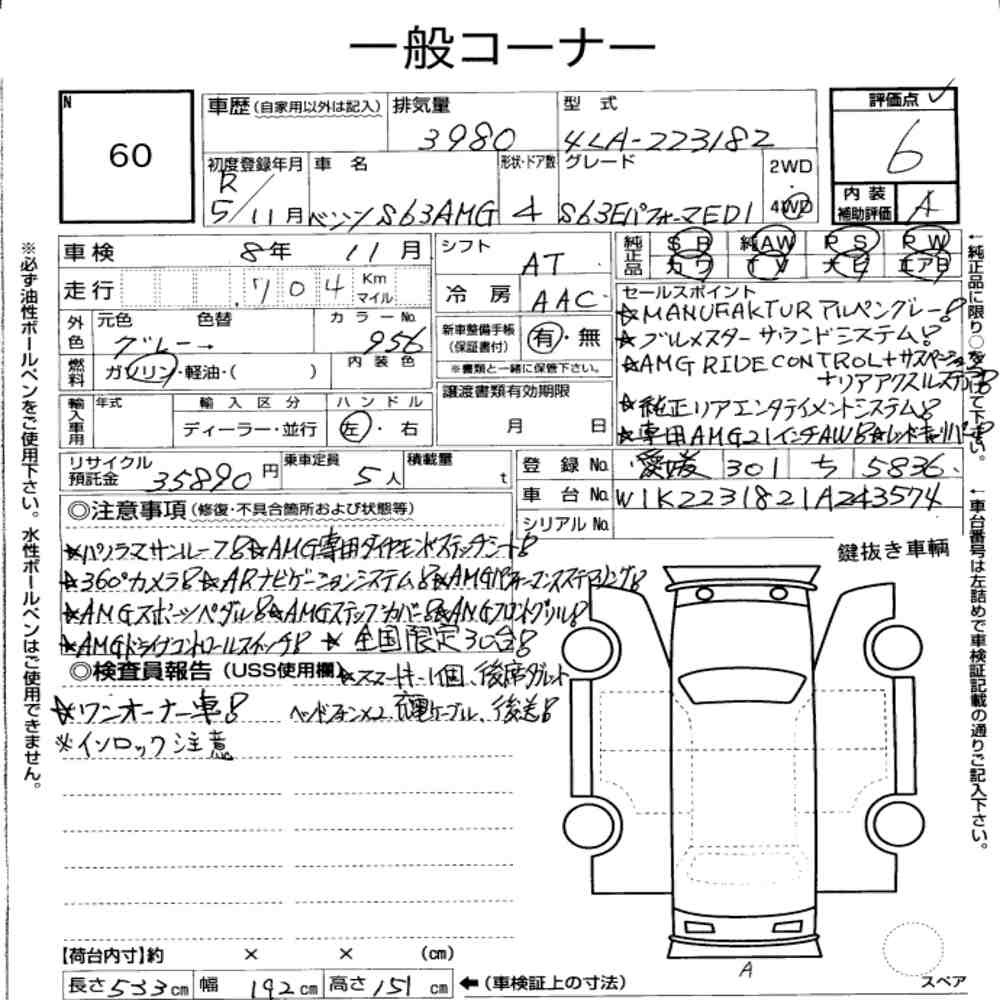 一般コーナー
N
60
車歴 (自家用以外は記入)
排気量
3980
型 式
4LA-223182
評価点 ✓
6
初度登録年月
R5/11月
車 名
ベンツ S63AMG
形状・ドア数
4
グレード
S63EパフォーマED1
2WD
4WD
内 装
補助評価
A
車検 8年 11月
シフト
AT
純正品
SR 純AW PS PW
カワ TV ナビ エアB
走行 704 Km マイル
冷 房
AAC
セールスポイント
★MANUFAKTUR アルペングレー8
★ブルメスター サウンドシステム8
★AMG RIDE CONTROL+サスペーション
+リアアクスルステア8
★純正リアエンタテイメントシステム8
★専用AMG21インチAW8★レッドキャリパー8
外色
元色 色替
グレー→
カラーNo.
956
新車整備手帳
(保証書付)
有・無
※書類と一緒に保管下さい。
燃料
ガソリン・軽油・( )
内 装 色
譲渡書類有効期限
月 日
輸入車用
年式
輸 入 区 分
ディーラー・並行
ハ ン ド ル
左・右
リサイクル預託金 35890円
乗車定員 5人
積載量 t
登 録 No. 愛媛 301 ち 5836
車 台 No. W1K2231821A243574
シリアル No.
◎注意事項 (修復・不具合箇所および状態等)
★パノラマサンルーフ8★AMG専用ダイヤモンドステッチシート8
★360°カメラ8★ARナビゲーションシステム8★AMGパフォーマンスステアリング8
★AMGスポーツペダル8★AMGステップカバー8★AMGフロントグリル8
★AMGドライブコントロールスイッチ8 ★全国限定30台8
◎検査員報告 (USS使用欄)
★スマートキー1個、後席タブレット
★ワンオーナー車8
ヘッドフォン×2 充電ケーブル、後送8
※インロック注意
鍵抜き車輌
A
スペア
【荷台内寸】約 × × (cm)
長さ533cm 幅192cm 高さ151cm
←(車検証上の寸法)
※必ず油性ボールペンをご使用下さい。水性ボールペンはご使用できません。
←純正品に限り○をつけて下さい。
←車台番号は左詰めで車検証記載の通りご記入下さい。